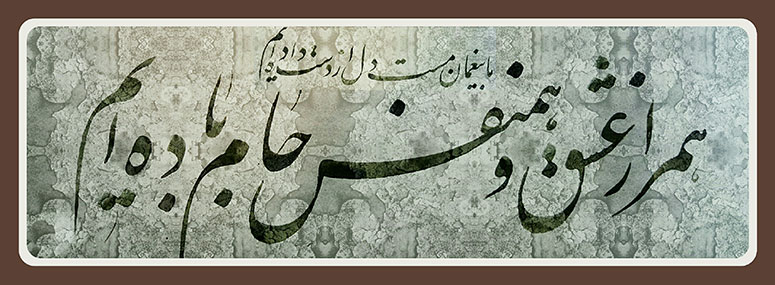 ما بیغمان مست دل از دست داده‌ایم
همراز عشق و همنفس جام باده‌ایم